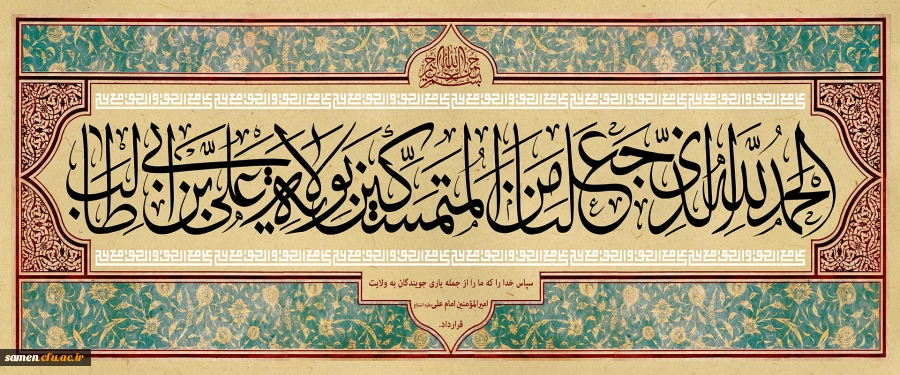 بسم الله الرحمن الرحیم
الحمد لله الذی جعلنا من المتمسکین بولایة علی بن ابی طالب
سپاس خدا را که ما را از جمله یاری جویندگان به ولایت
امیرالمؤمنین امام علی علیه السلام
قرارداد.
samen.cfu.ac.ir